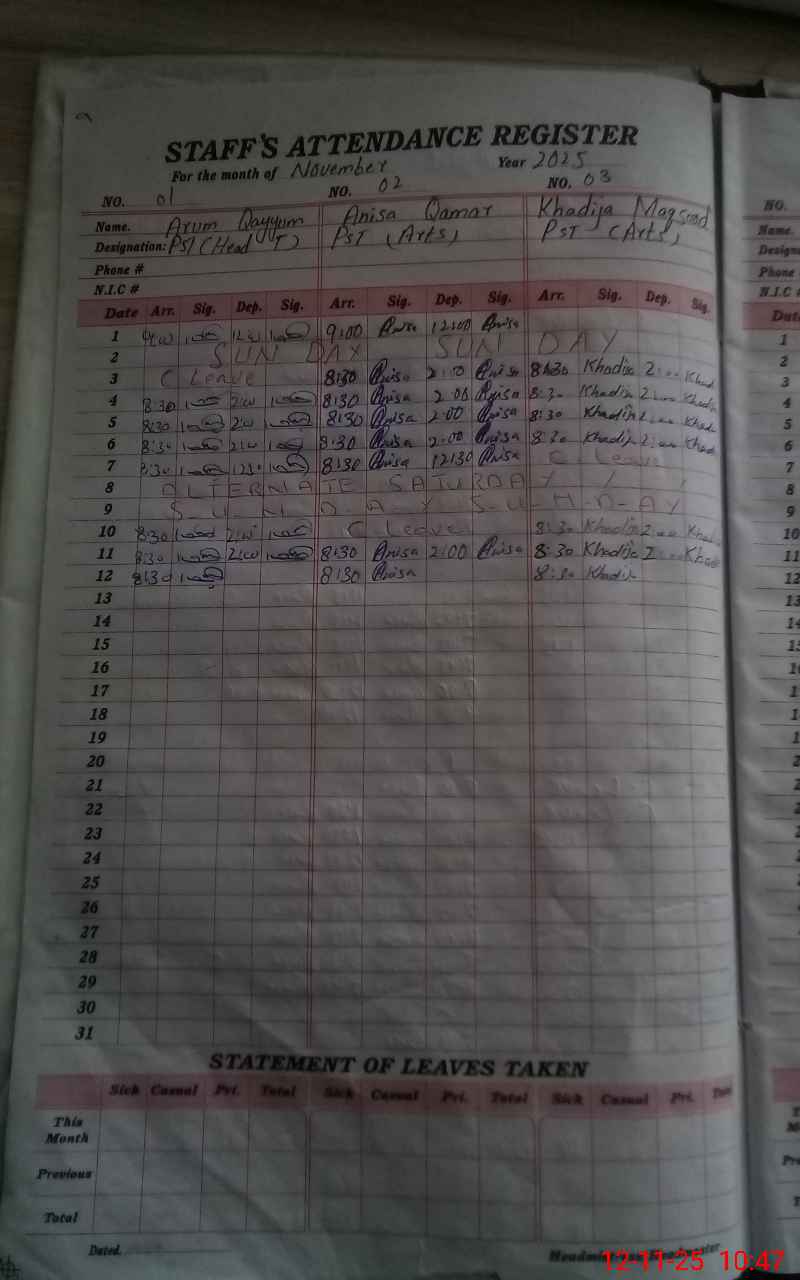 STAFF'S ATTENDANCE REGISTER
For the month of November Year 2025
NO. 01 NO. 02 NO. 03
Name. Arum Qayyum Anisa Qamar Khadija Maqsood
Designation: PST (Head T) PST (Arts) PST (Arts)
Phone #
N.I.C #
Date Arr. Sig. Dep. Sig. Arr. Sig. Dep. Sig. Arr. Sig. Dep. Sig.
1 9:00 Anisa 12:00 Anisa
2 SUN DAY SUN DAY
3 C Leave 8:30 Anisa 2:00 Anisa 8:30 Khadija 2:00 Khad
4 8:30 2:00 8:30 Anisa 2:00 Anisa 8:30 Khadija 2:00 Khadi
5 8:30 2:00 8:30 Anisa 2:00 Anisa 8:30 Khadija 2:00 Khad
6 8:30 2:00 8:30 Anisa 2:00 Anisa 8:30 Khadija 2:00 Khad
7 8:30 12:30 8:30 Anisa 12:30 Anisa C Leave
8 ALTERNATE SATURDAY
9 S-U-N-D-A-Y S-U-N-D-A-Y
10 8:30 2:00 C Leave 8:30 Khadija 2:00 Khadi
11 8:30 2:00 8:30 Anisa 2:00 Anisa 8:30 Khadija 2:00 Khadi
12 8:30 8:30 Anisa 8:30 Khadija
13
14
15
16
17
18
19
20
21
22
23
24
25
26
27
28
29
30
31
STATEMENT OF LEAVES TAKEN
Sick Casual Pvt. Total Sick Casual Pvt. Total Sick Casual Pvt. Total
This
Month
Previous
Total
Dated.
12-11-25 10:47